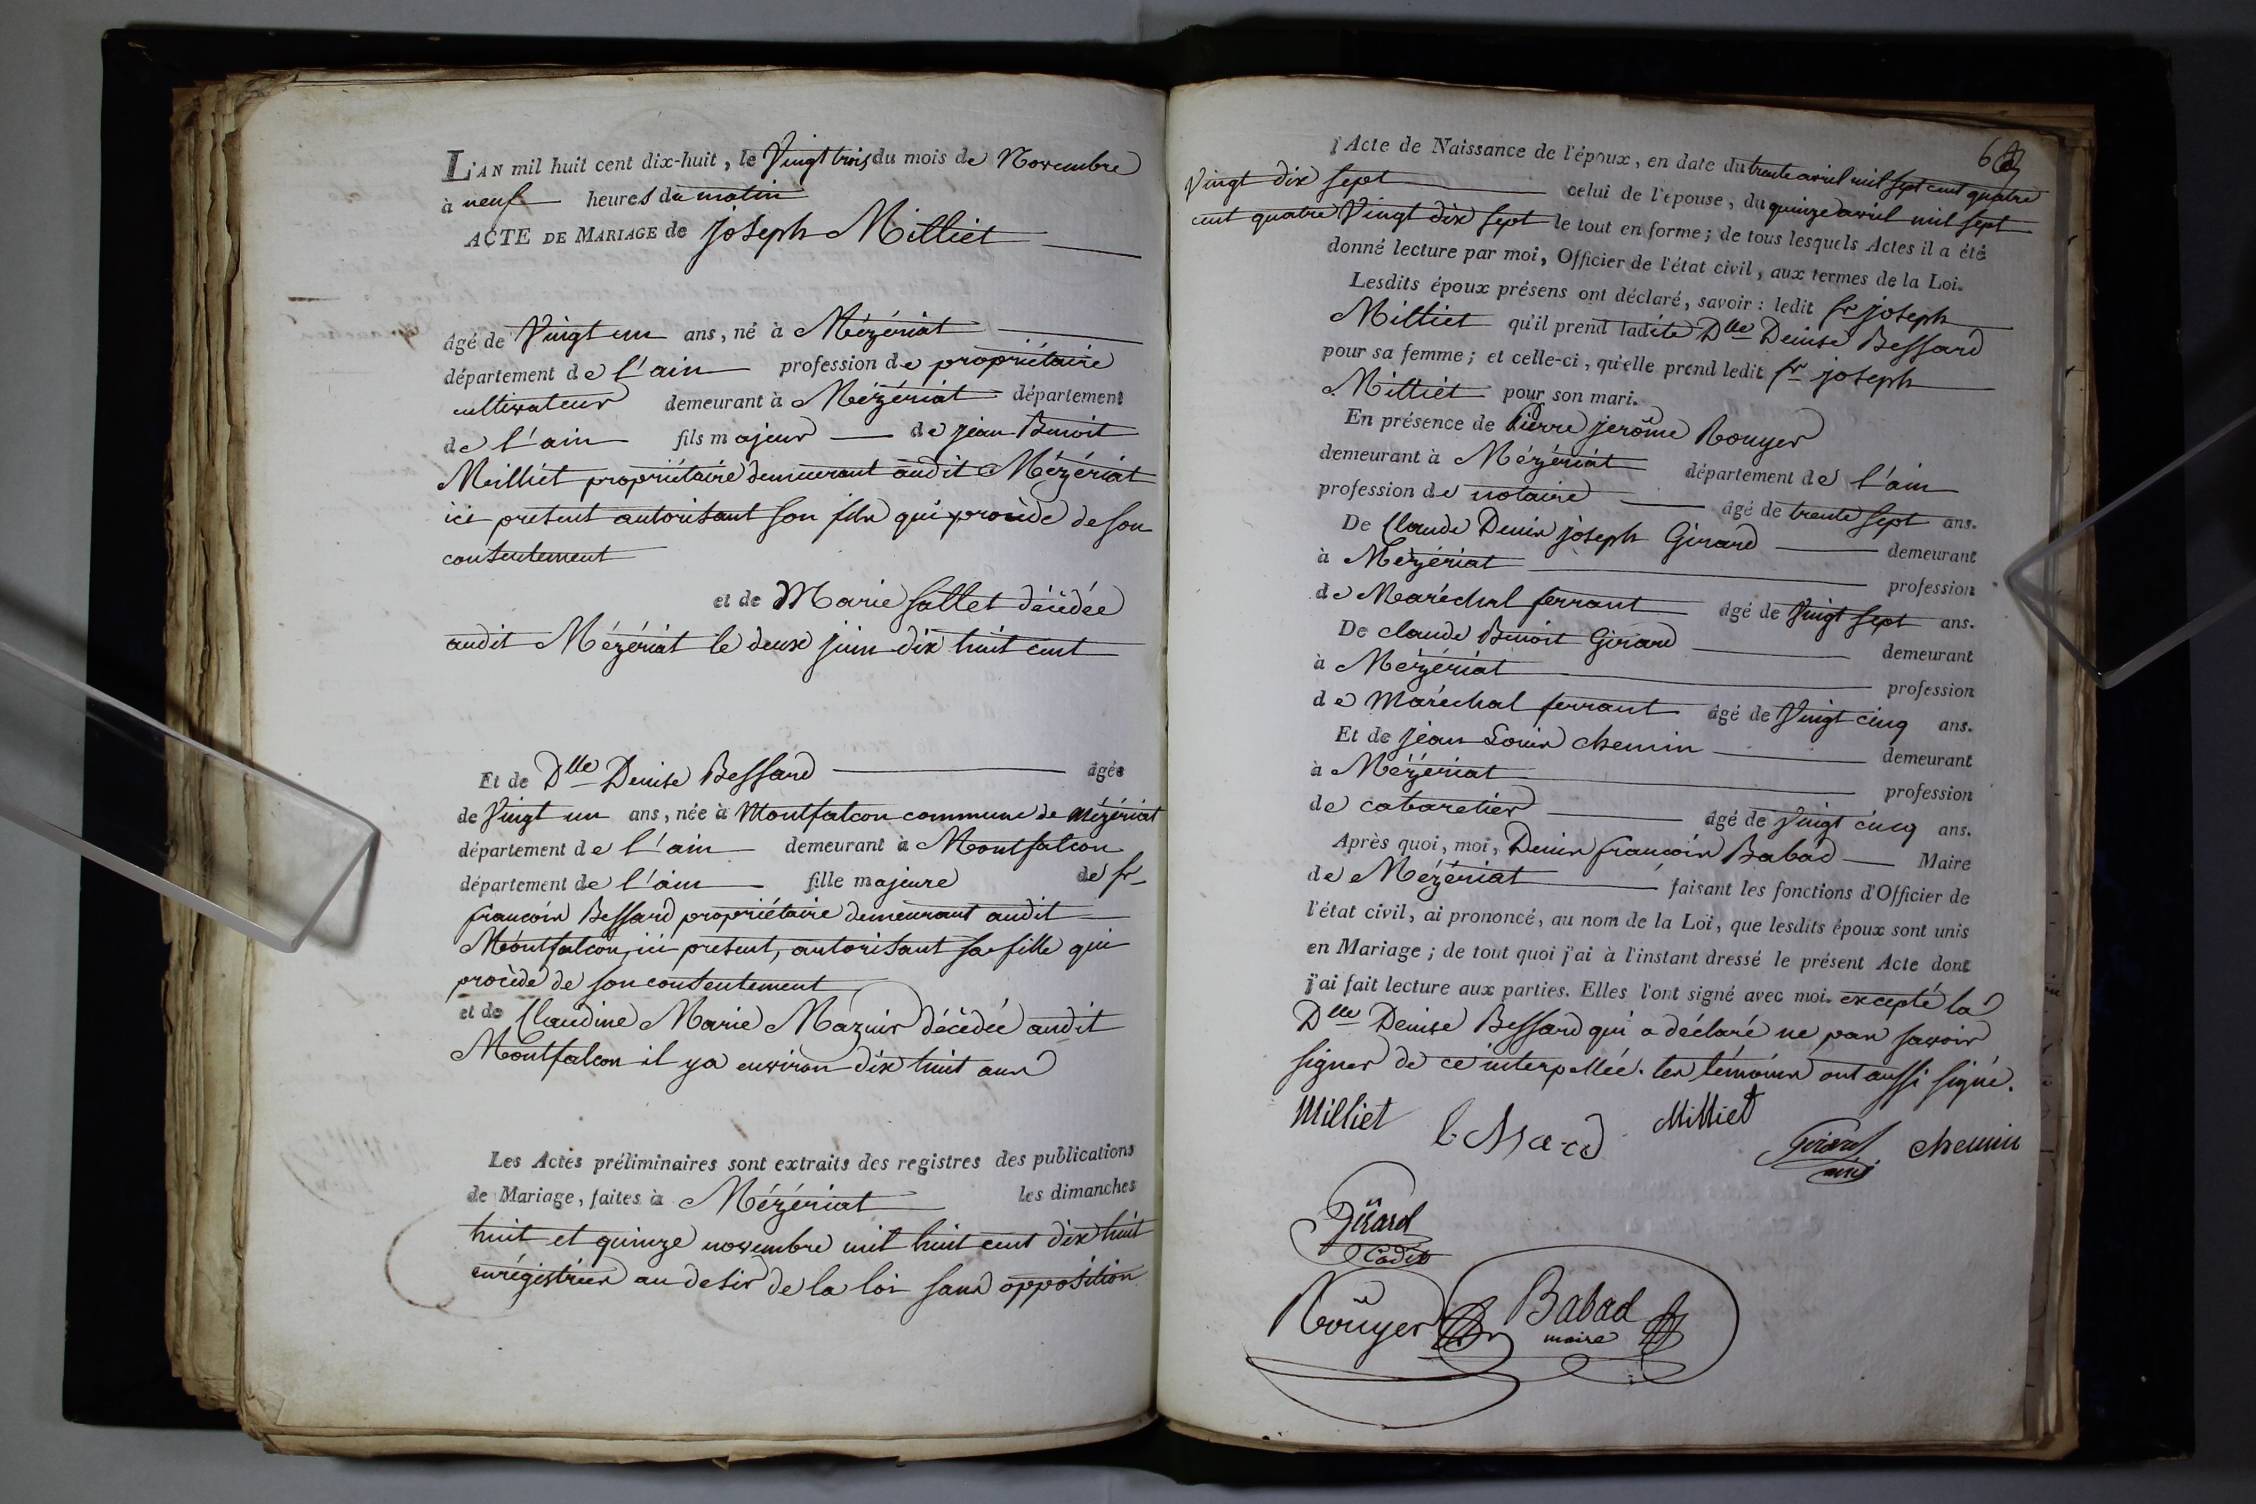 L'AN mil huit cent dix-huit, le Vingt trois du mois de Novembre
à neuf heures du matin
ACTE DE MARIAGE de joseph Milliet
âgé de Vingt un ans, né à Mézériat
département de l'ain profession de propriétaire
cultivateur demeurant à Mézériat département
de l'ain fils majeur de jean Benoit
Milliet propriétaire demeurant audit Mézériat
ici present autorisant son fils qui procède de son
consentement
et de Marie sallet décédée
audit Mézériat le deux juin dix huit cent
Et de Dlle Denise Bessard âgée
de Vingt un ans, née à Montfalcon commune de Mézériat
département de l'ain demeurant à Montfalcon
département de l'ain fille majeure de sr
françois Bessard propriétaire demeurant audit
Montfalcon, ici present, autorisant sa fille qui
procède de son consentement
et de Claudine Marie Mazuir décédée audit
Montfalcon il ya environ dix huit ans
Les Actes préliminaires sont extraits des registres des publications
de Mariage, faites à Mézériat les dimanches
huit et quinze novembre mil huit cent dix huit
enrégistrées au desir de la loi sans opposition
l'Acte de Naissance de l'époux, en date du trente avril mil sept cent quatre
Vingt dix sept celui de l'épouse, du quinze avril mil sept
cent quatre Vingt dix sept le tout en forme; de tous lesquels Actes il a été
donné lecture par moi, Officier de l'état civil, aux termes de la Loi.
Lesdits époux présens ont déclaré, savoir: ledit sr joseph
Milliet qu'il prend ladite Dlle Denise Bessard
pour sa femme; et celle-ci, qu'elle prend ledit sr joseph
Milliet pour son mari.
En présence de Pierre jerôme Rouyer
demeurant à Mézériat département de l'ain
profession de notaire âgé de trente sept ans.
De Claude Denis joseph Girard demeurant
à Mezériat profession
de Maréchal ferrant âgé de Vingt sept ans.
De claude Benoit Girard demeurant
à Mézériat profession
de Maréchal ferrant âgé de Vingt cinq ans.
Et de jean Louis chemin demeurant
à Mézériat profession
de cabaretier âgé de Vingt cinq ans.
Après quoi, moi, Denis françois Babad Maire
de Mézériat faisant les fonctions d'Officier de
l'état civil, ai prononcé, au nom de la Loi, que lesdits époux sont unis
en Mariage; de tout quoi j'ai à l'instant dressé le présent Acte dont
j'ai fait lecture aux parties. Elles l'ont signé avec moi. excepté la
Dlle Denise Bessard qui a déclaré ne pas savoir
signer de ce interpellée. les témoins ont aussi signé.
Milliet bessard Milliet Girard ainé chemin
Girard
Cadet
Roüyer Babad
maire